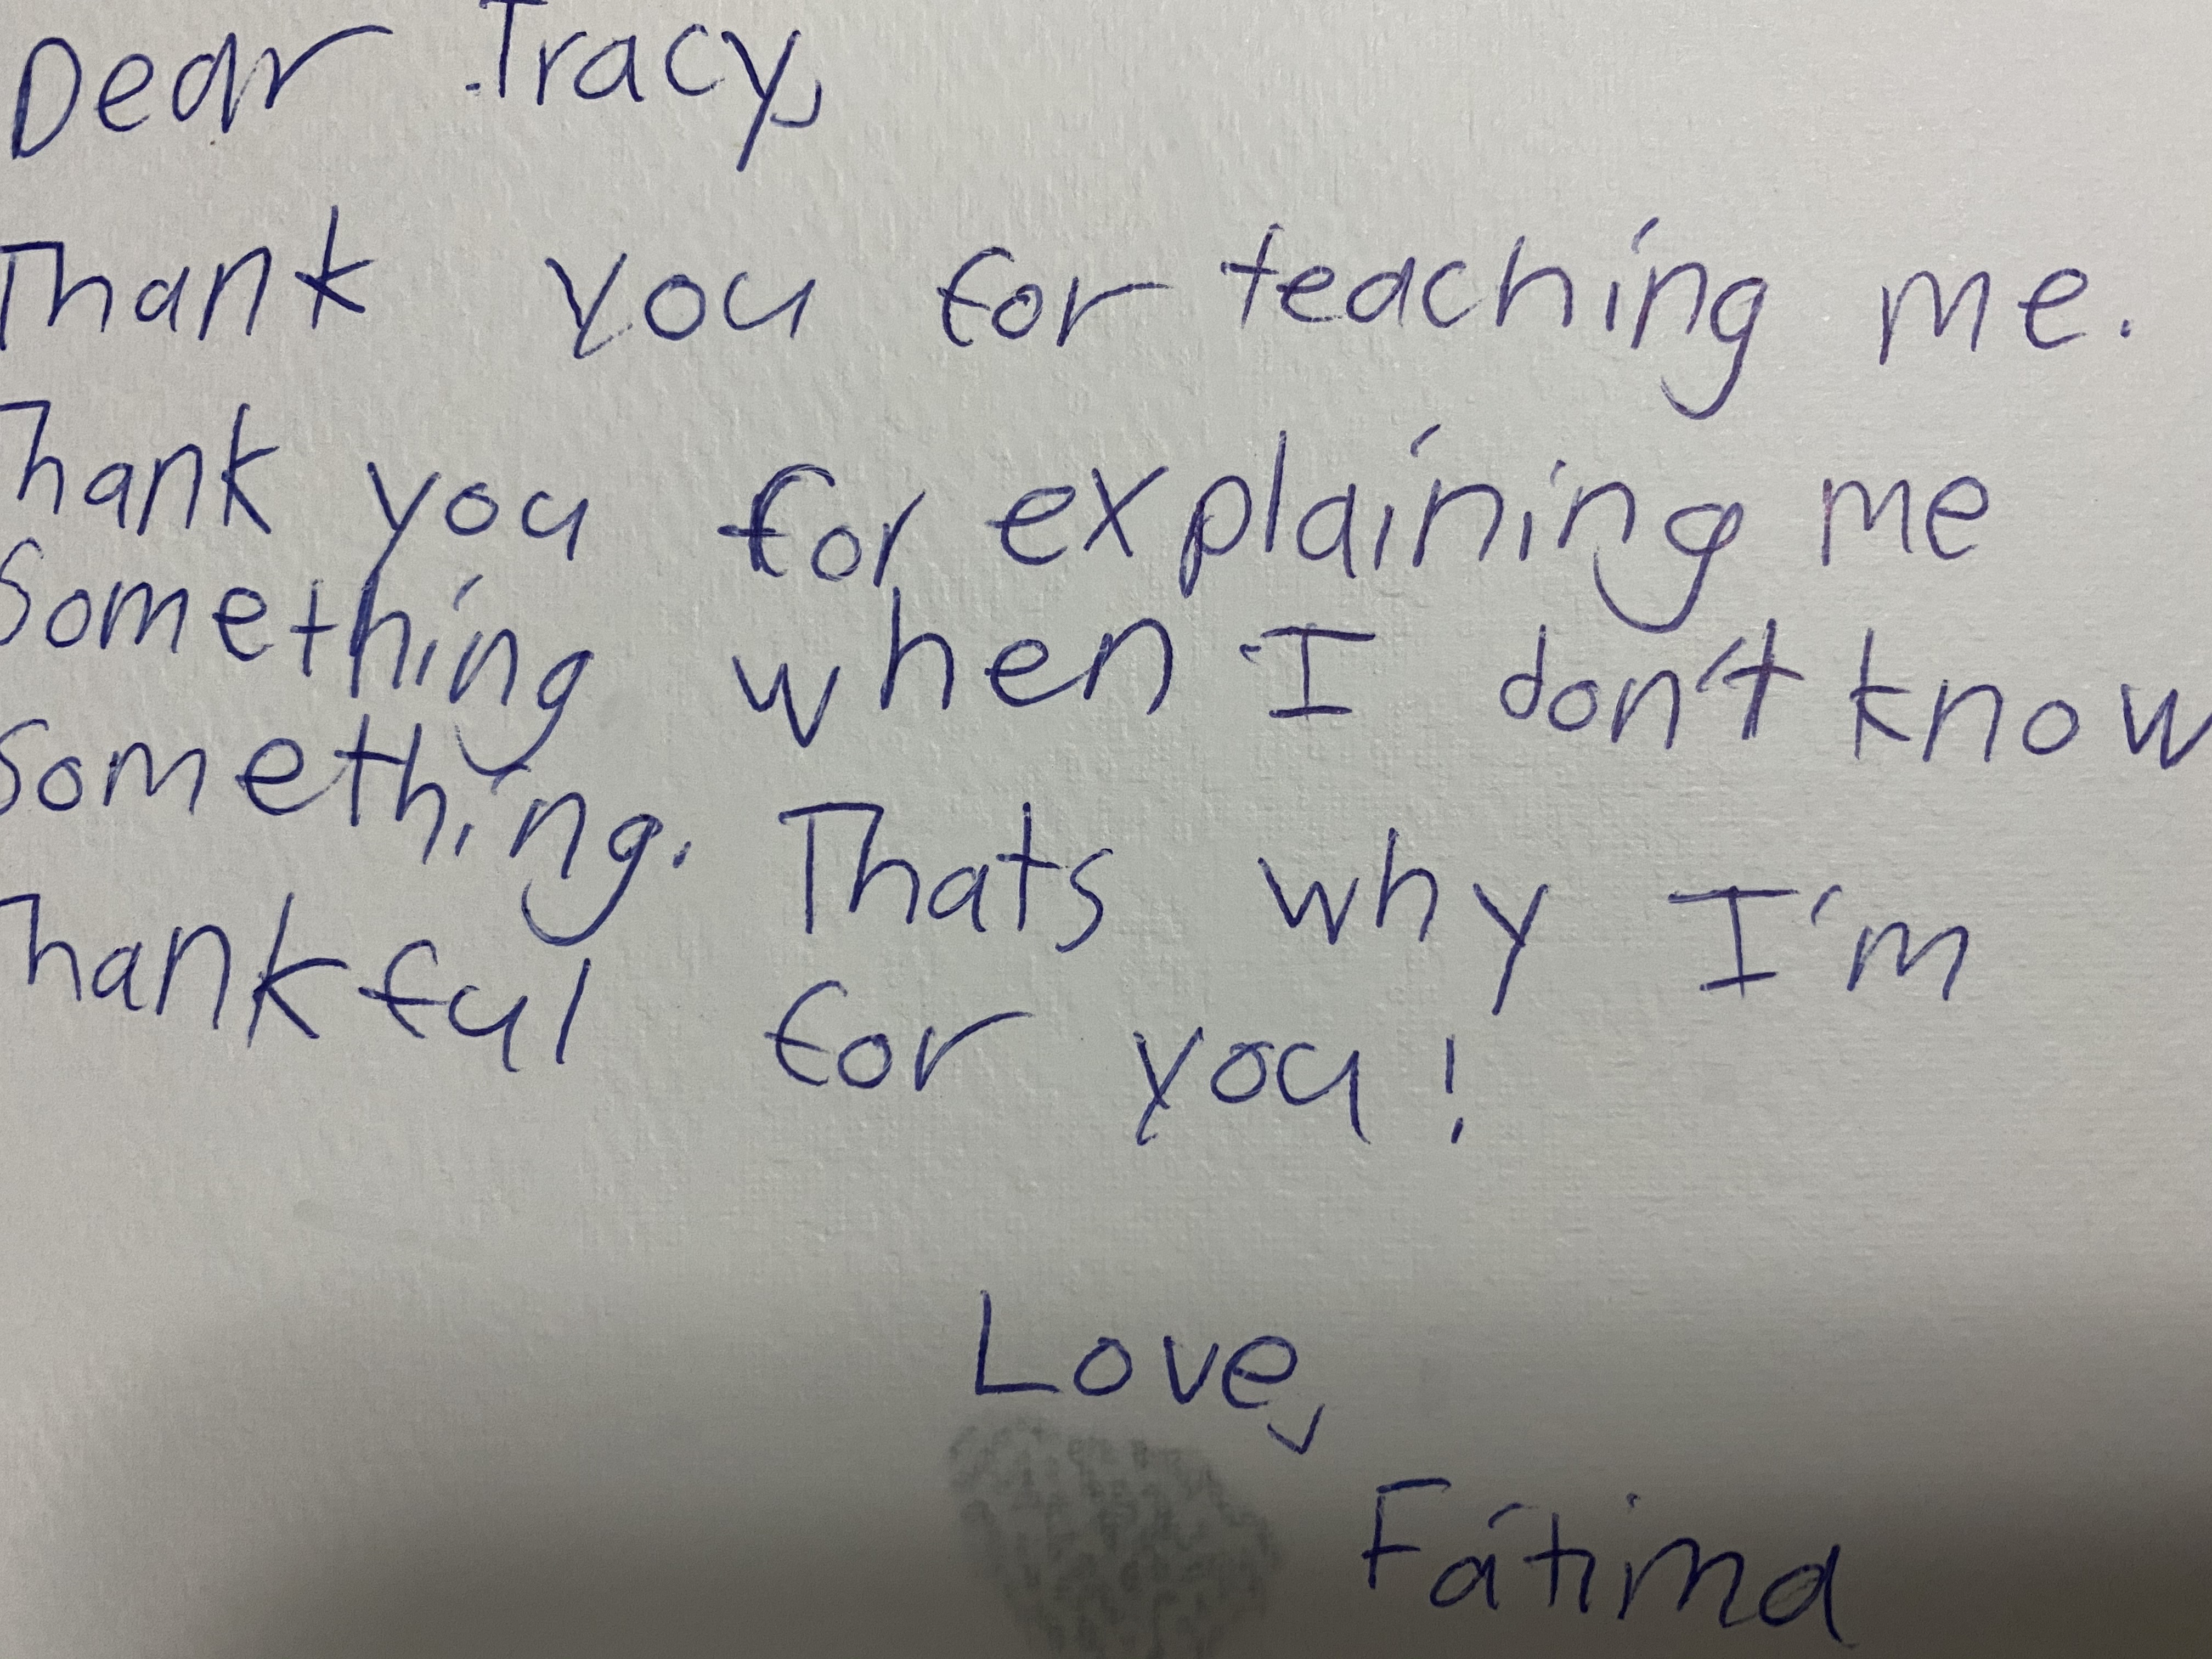 Dear Tracy,
Thank you for teaching me.
Thank you for explaining me
Something when I don't know
Something. Thats why I'm
Thankful for you!
Love,
Fátima